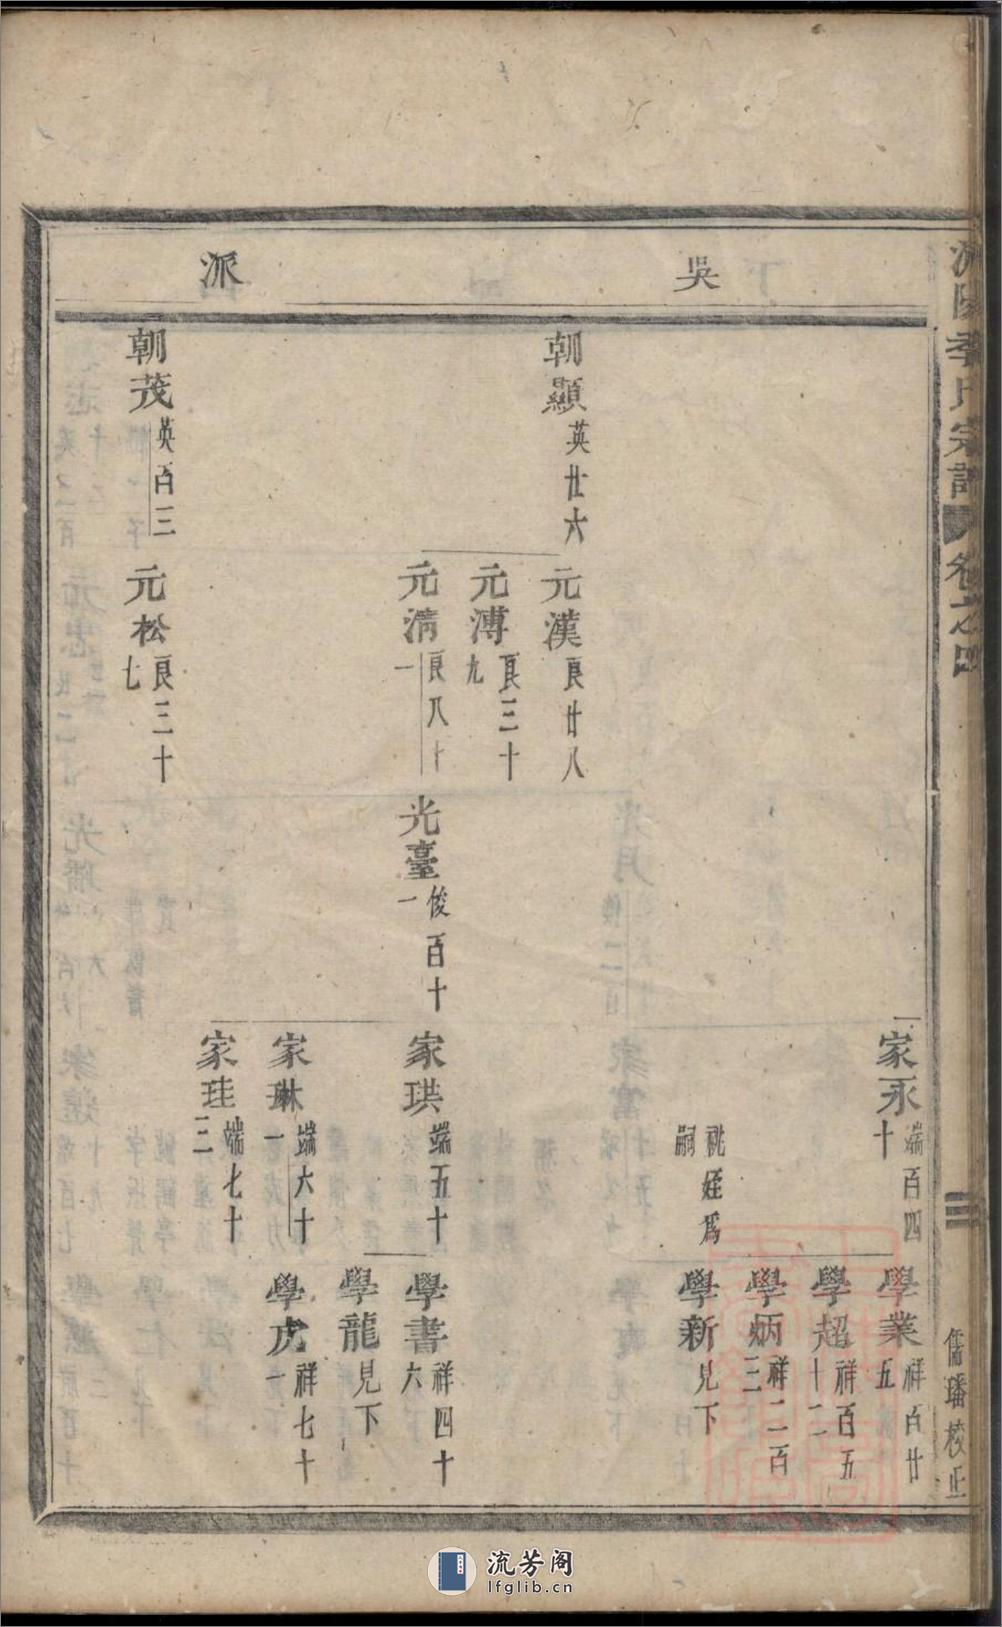 季氏宗譜
卷之四
儒璠校正
吳
派
朝顯 英廿六
朝茂 英百三
元漢 良廿八
元溥 良三十九
元淸 良八十一
元松 良三十七
光臺 俊百十一
家永 端百四十
祧姪爲嗣
家珙 端五十
家琳 端六十一
家珪 端七十三
學業 祥百廿五
學超 祥百五十二
學炳 祥二百三
學新 見下
學書 祥四十六
學龍 見下
學虎 祥七十一
流芳阁
lfglib.cn